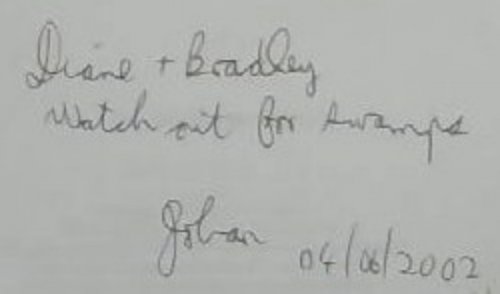 Diane + Bradley
Watch out for swamps
04/06/2002